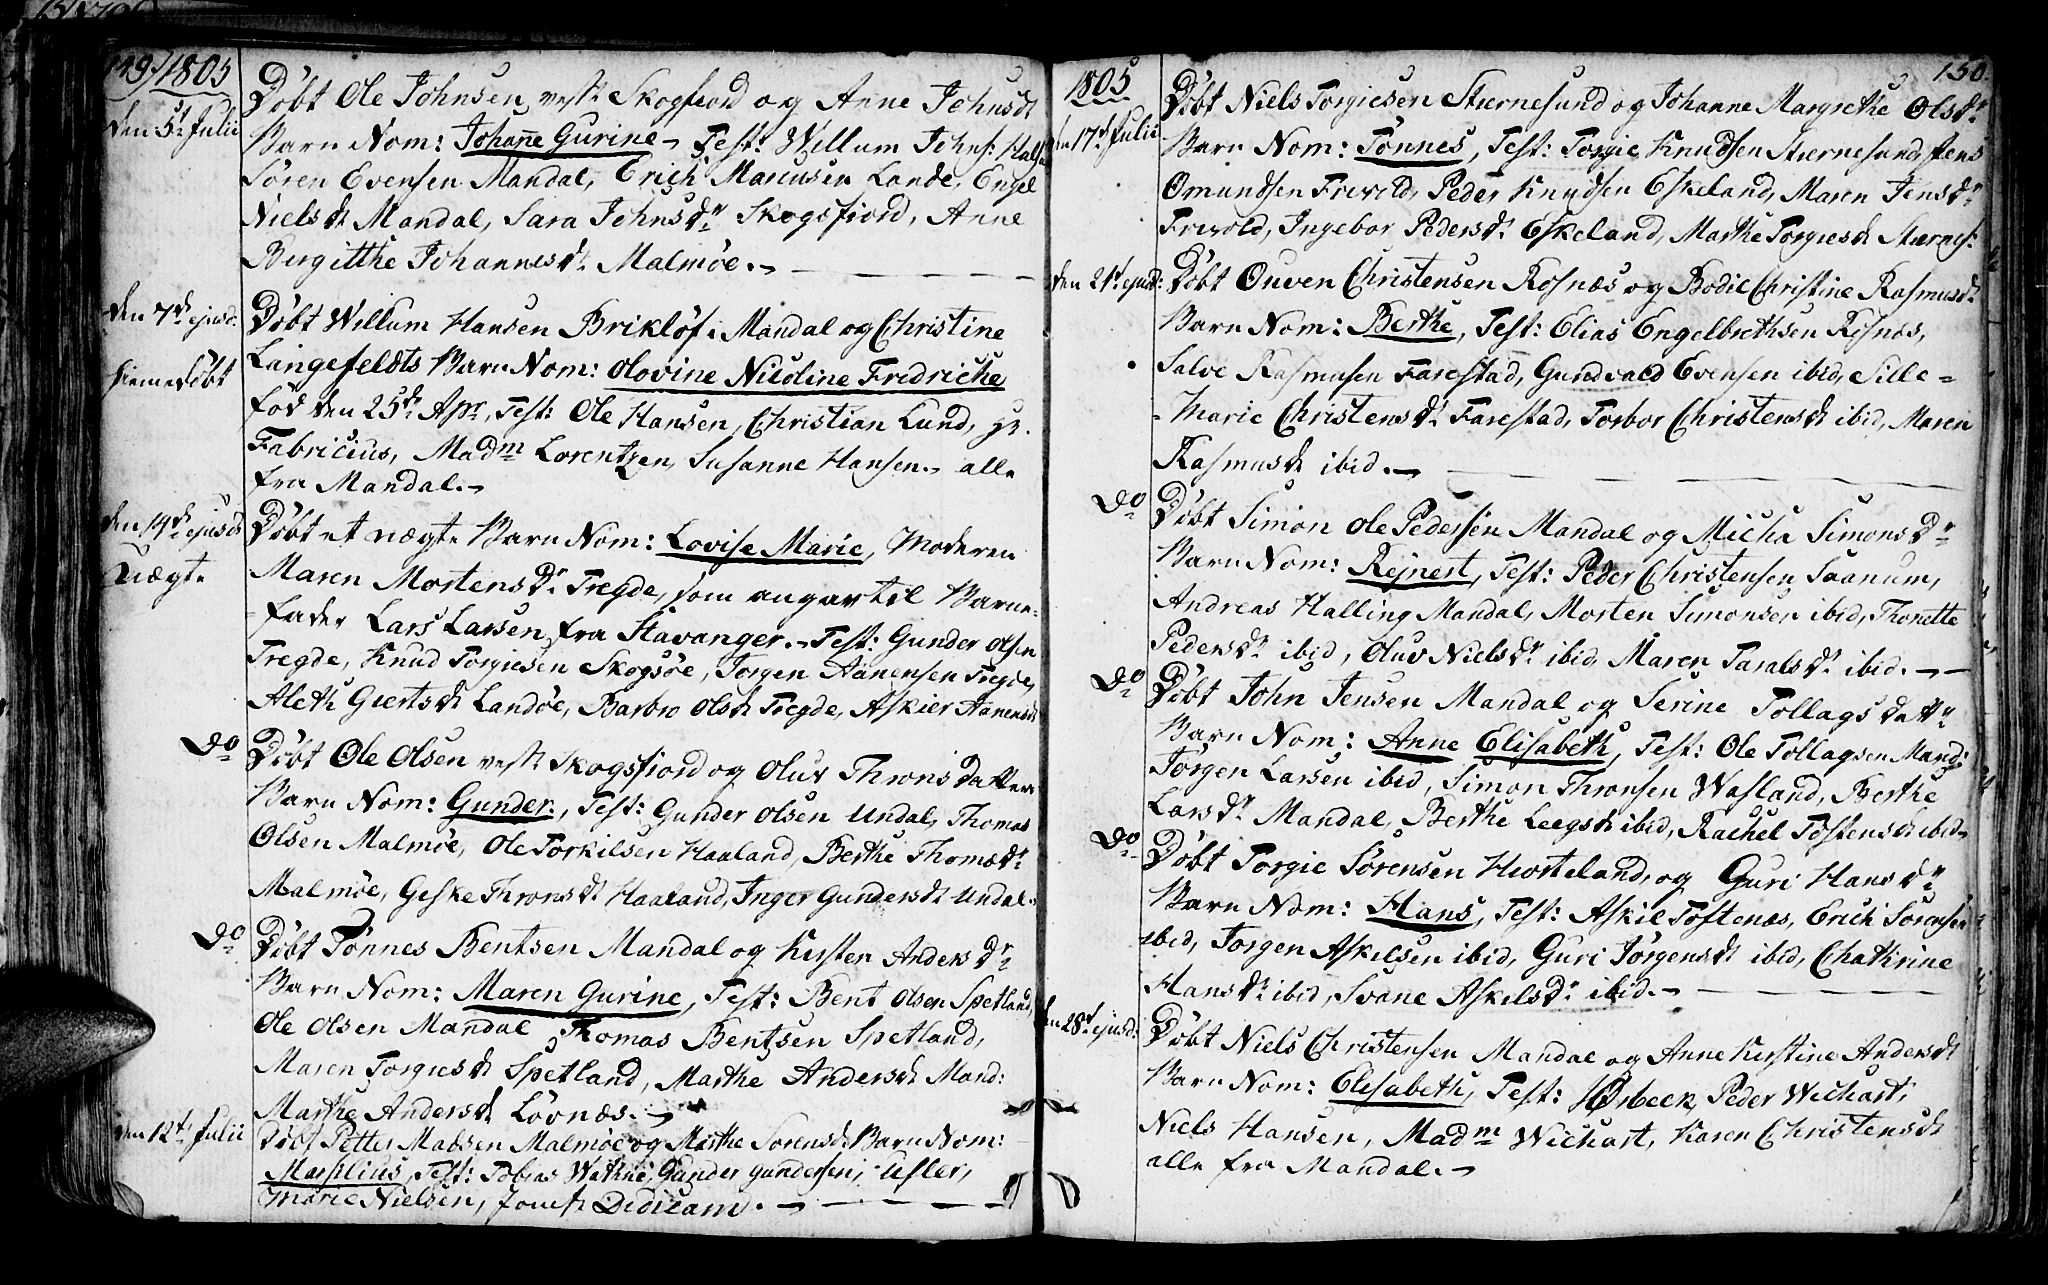 149, 1805
den 5t Julii
Døbt Ole Johnsen vest: Skogfiord og Anne Johnsdt
Barn Nom: Johanne Gurine, Test: Willum Johns:
Søren Evensen Mandal, Erich Marcusen Lande, Engel
Nielsdt Mandal, Sara Johnsdr Skogsfiord, Anne
Birgitthe Johannesdt Malmøe.
den 7de ejusd:
Døbt Willum Hansen Brikløf i Mandal og Christine
hiemedøbt
Langefeldts Barn Nom: Olovine Nicoline Fredriche
fød den 25de Apr, Test: Ole Hansen, Christian Lund, Hr.
Fabricius, Madm Lorentzen, Susanne Hansen, alle
fra Mandal.
den 14de ejusd
Døbt et uægte Barn Nom: Lovise Marie, Moderen
Uægte
Maren Mortensdr Tregde, som angav til Barne-
-fader Lars Larsen fra Stavanger. Test: Gunder Olsen
Tregde, Knud Torgiesen Skogsøe, Jørgen Aanensen Tregde,
Aleth Giertsdt Landøe, Barbro Olsdt Tregde, Askier Aanensdt
Do
Døbt Ole Olsen vest: Skogsfiord og Oluv Thronsdatter
Barn Nom: Gunder, Test: Gunder Olsen Undal, Thomas
Olsen Malmøe, Ole Torkilsen Haaland, Berthe Thomædr
Malmøe, Geske Thronsdt Haaland, Inger Gundersdt Undal.
Do
Døbt Tønnes Bentsen Mandal og Kirsten Andersdr
Barn Nom: Maren Gurine, Test: Bent Olsen Spetland,
Ole Olsen Mandal Thomas Bentsen Spetland,
Maren Torgiesdt Spetland, Marthe Andersdt Mand:
Marthe Andersdt Løvnæs.
den 12t Julii
Døbt Petter Madsen Malmøe og Marthe Sørensdt Barn Nom:
Test: Tobias Wathne, Gunder Gundersen,
Marie Nielsen, Jomfr Didicam.
1805
150.
den 17t Julii
Døbt Niels Torgiesen Stiernesund og Johanne Margrethe Olsdr
Barn Nom: Tønnes, Test: Torgie Knudsen Stiernesund, Jens
Omundsen Frivold, Peder Knudsen Eskeland, Maren Jensdr
Frivold, Ingebor Pedersdt Eskeland, Marthe Torgiesdt Stiernes:
den 21t ejusd:
Døbt Ouven Christensen Rosnæs og Bodil Christine Rasmusdt
Barn Nom: Berthe, Test: Elias Engelbrethsen Rosnæs,
Salve Rasmusen Farestad, Gundvald Evensen ibid, Sille-
-Marie Christensdt Farestad, Torbor Christensdt ibid, Maren
Rasmusdt ibid.
Do
Døbt Simon Ole Pedersen Mandal og Micha Simonsdr
Barn Nom: Rejnert, Test: Peder Christensen Saanum,
Andreas Halling Mandal, Morten Simonsen ibid, Thonette
Pedersdr ibid, Oluv Nielsdr ibid, Maren Taralsdr ibid.
Do
Døbt John Jensen Mandal og Serine Tollagsdattr
Barn Nom: Anne Elisabeth, Test: Ole Tollagsen Mand:
Jørgen Larsen ibid, Simon Thronsen Wasland, Berthe
Larsdr Mandal, Berthe Leegsdt ibid, Rachel Tostensdt ibid.
Do
Døbt Torgie Sørensen Hiorteland, og Guri Hansdr
Barn Nom: Hans, Test: Askil Tostenæs, Erich Sørensen
ibid, Jørgen Askilsen ibid, Guri Jørgensdt ibid, Chathrine
Hansdr ibid, Svane Askelsdr ibid.
den 28t ejusd:
Døbt Niels Christensen Mandal og Anne Kirstine Andersdt
Barn Nom: Elisabeth, Test: Peder Wichart,
Niels Hansen, Madm Wichart, Karen Christensdt
alle fra Mandal.